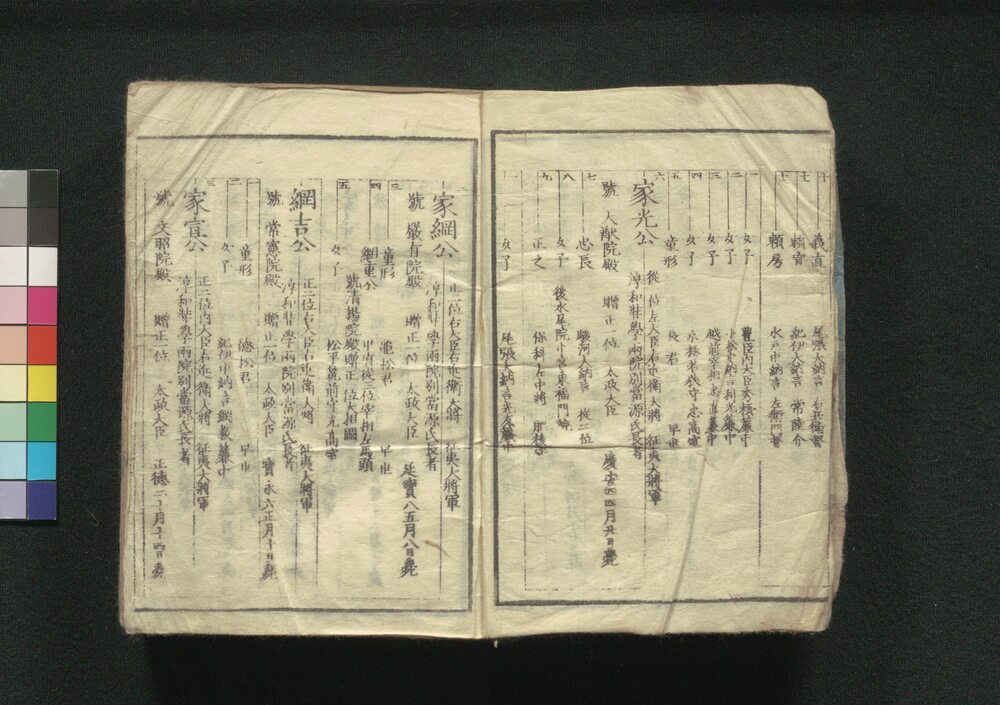 十 義直 尾張大納言 右兵衛督
十 頼宣 紀伊大納言 常陸介
十一 頼房 水戸中納言 左衛門督
一 女子 豊臣内大臣秀頼簾中
二 女子 小松中納言利光簾中
三 女子 越前宰相忠直簾中
四 女子
五 童形 長君 早世
六 家光公 従一位左大臣右近衛大将 征夷大将軍
淳和奨學両院別當源氏長者
號 大猷院殿 贈正一位 太政大臣 慶安四四月廿日薨
七 忠長 駿河大納言 従二位
八 女子 後水尾院中宮東福門院
九 正之 保科左中将 肥後守
一 女子 尾張大納言光友簾中
二 家綱公 正二位右大臣右近衛大將 征夷大将軍
淳和奨學両院別當源氏長者
號 嚴有院殿 贈正一位 太政大臣 延寳八五月八日薨
三 童形 亀松君 早世
四 綱重公 甲府従三位宰相左馬頭
號清揚院殿贈正一位大相國
五 女子 松平筑前守光高室
綱吉公 正二位右大臣右近衛大将 征夷大将軍
淳和奨學両院別當源氏長者
號 常憲院殿 贈正一位 太政大臣 寳永六正月十日薨
一 童形 徳松君 早世
二 女子 紀伊中納言綱教簾中
三 家宣公 正二位内大臣右近衛大将 征夷大将軍
淳和奨學両院別當源氏長者
號 文昭院殿 贈正一位 太政大臣 正徳二十月十四日薨